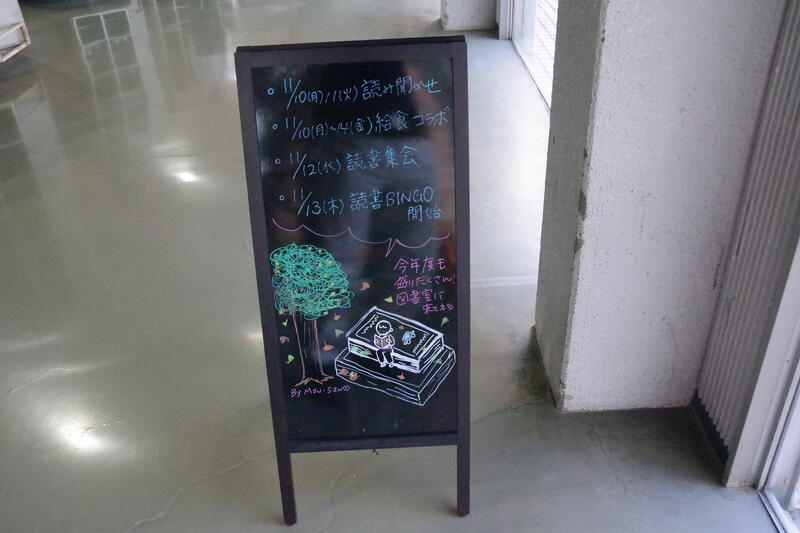 • 11/10(月)11(火)読み聞かせ
• 11/10(月)〜14(金)給食コラボ
• 11/12(水)読書集会
• 11/13(木)読書BINGO
開始
今年度も
盛りだくさん!
図書室に
来てネ
By Mou-San♡